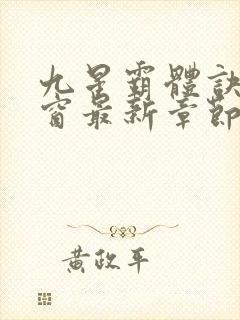 九星霸體訣
窗最新章節
黃政平